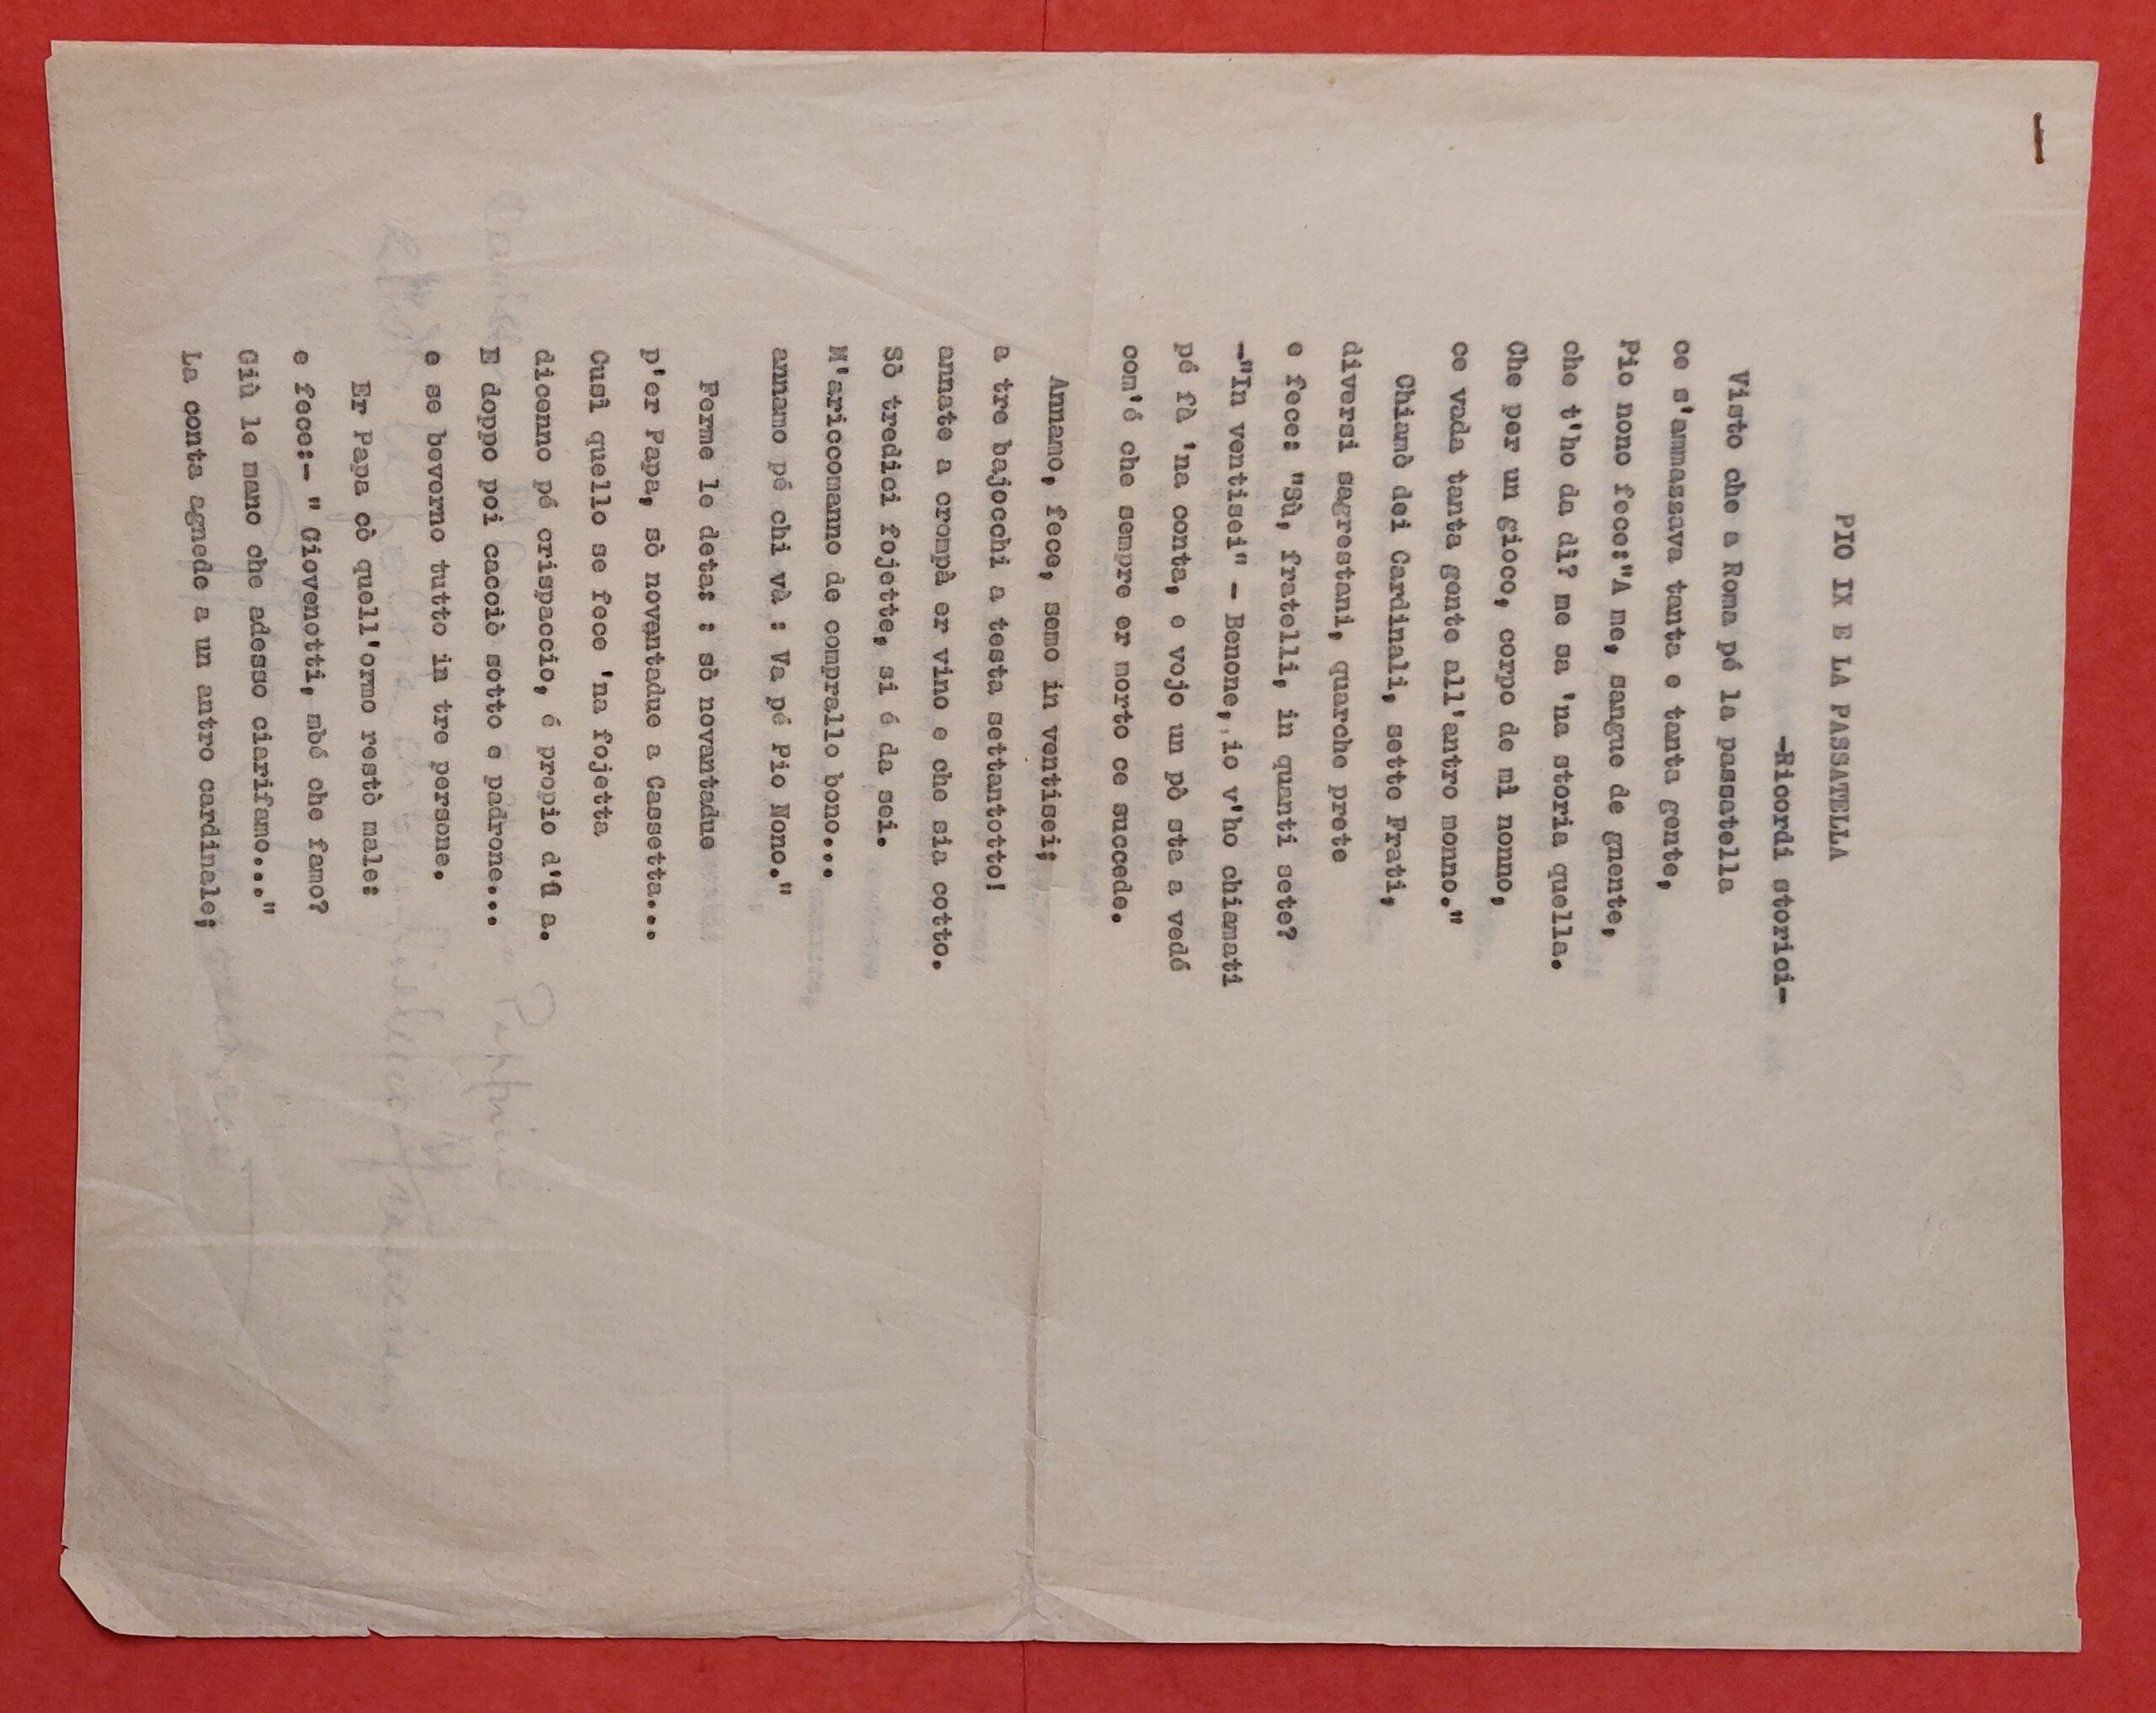 PIO IX E LA PASSATELLA
-Ricordi storici-
Visto che a Roma pé la passatella
ce s'ammassava tanta e tanta gente,
Pio nono fece:"A me, sangue de gnente,
che t'ho da dì? me sa 'na storia quella.
Che per un gioco, corpo de mì nonno,
ce vada tanta gente all'antro monno."
Chiamò dei Cardinali, sette Frati,
diversi sagrestani, quarche prete
e fece: "Sù, fratelli, in quanti sete?
-"In ventisei" - Benone, io v'ho chiamati
pé fà 'na conta, e vojo un pò sta a vedé
com'é che sempre er morto ce succede.
Annamo, fece, semo in ventisei;
a tre bajocchi a testa settantotto!
annate a crompà er vino e che sia cotto.
Sò tredici fojette, si é da sei.
M'ariccomanno de comprallo bono...
annamo pé chi và : Va pé Pio Nono."
Ferme le deta: : sò novantadue
p'er Papa, sò novantadue a Cassetta...
Cusì quello se fece 'na fojetta
dicenno pé crispaccio, é propio d'û a.
E doppo poi cacciò sotto e padrone...
e se beverno tutto in tre persone.
Er Papa cò quell'ormo restò male:
e fece:- " Giovenotti, mbé che famo?
Giù le mano che adesso ciarifamo..."
La conta agnede a un antro cardinale;